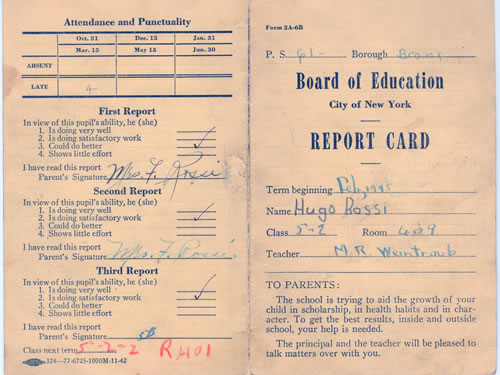 Attendance and Punctuality
Oct. 31 Dec. 15 Jan. 31
Mar. 15 May 15 Jun. 30
ABSENT
LATE 4
First Report
In view of this pupil's ability, he (she)
1. Is doing very well
2. Is doing satisfactory work
3. Could do better ✓
4. Shows little effort
I have read this report
Parent's Signature Mrs. F. Rossi
Second Report
In view of this pupil's ability, he (she)
1. Is doing very well
2. Is doing satisfactory work ✓
3. Could do better
4. Shows little effort
I have read this report
Parent's Signature Mrs. F. Rossi
Third Report
In view of this pupil's ability, he (she)
1. Is doing very well
2. Is doing satisfactory work ✓
3. Could do better
4. Shows little effort
I have read this report
Parent's Signature
Class next term 5-2-2 R401
324-77-6725-1000M-11-42
Form 2A-6B
P. S. 61- Borough Bronx
Board of Education
City of New York
REPORT CARD
Term beginning Feb, 1945
Name Hugo Rossi
Class 5-2 Room 409
Teacher M. R. Weintraub
TO PARENTS:
The school is trying to aid the growth of your
child in scholarship, in health habits and in char-
acter. To get the best results, inside and outside
school, your help is needed.
The principal and the teacher will be pleased to
talk matters over with you.